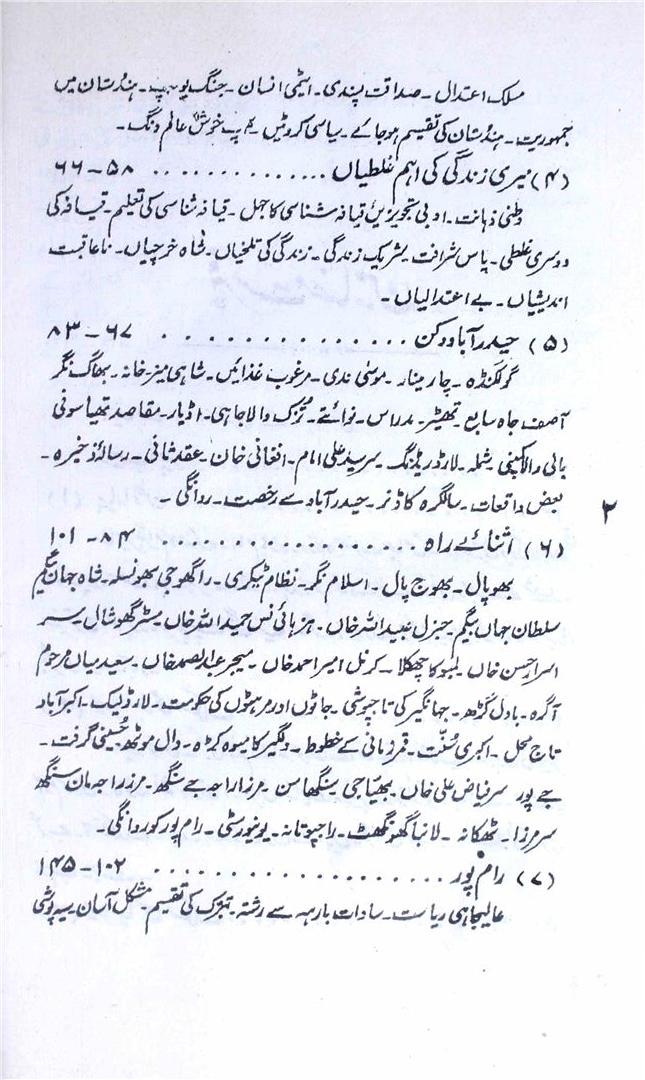 مسلک اعتدال۔ صداقت پسندی۔ ایٹمی انسان۔ جنگ یورپ۔ ہندُستان میں
جمہوریت۔ ہندُستان کی تقسیم ہوجائے۔ سیاسی کروٹیں۔ خوش عالم دنگ۔
(۴) میری زندگی کی اہم غلطیاں .............. ۵۸-۶۶
وطنی ذہانت۔ ادبی تجویزیں قیافہ شناسی کا جہل۔ قیافہ شناسی کی تعلیم۔ قیافہ کی
دوسری غلطی۔ پاس شرافت۔ شریک زندگی۔ زندگی کی تلخیاں۔ شاہ خرچیاں۔ ناعاقبت
اندیشیاں۔ بے اعتدالیاں۔
(۵) حیدرآباد دکن .............. ۶۷-۸۳
گولکنڈہ۔ چار مینار۔ موسیٰ ندی۔ مرغوب غذائیں۔ شاہی میز خانہ۔ بھاگ نگر
آصف جاہ سابع۔ تھیٹر۔ مدراس۔ نوائتے۔ تُزک والاجاہی۔ اڈیار۔ مقاصد تھیاسوفی
بانی والا کمیٹی۔ شملہ۔ لارڈ ریڈنگ۔ سر سید علی امام۔ افغانی خان۔ عقد ثانی۔ رسالۂ ذخیرہ۔
بعض واقعات۔ سالگرہ کا ڈنر۔ حیدرآباد سے رخصت۔ روانگی۔
۲
(۶) اثنائے راہ .............. ۸۴-۱۰۱
بھوپال۔ بھوج پال۔ اسلام نگر۔ نظام ٹیکری۔ راگھوجی بھونسلہ۔ شاہ جہاں بیگم
سلطان جہاں بیگم۔ جنرل عبیداللہ خاں۔ ہزہائی نس حمیداللہ خاں۔ مسٹر گھوشال۔ سر
اسرار حسن خاں۔ لیمو کا چھکلا۔ کرنل امیر احمد خاں۔ میجر عبدالصمد خاں۔ سعید میاں مرحوم
آگرہ۔ بادل گڑھ۔ جہانگیر کی تاجپوشی۔ جاٹوں اور مرہٹوں کی حکومت۔ لارڈ لیک۔ اکبرآباد
تاج محل۔ اکبری سُنّت۔ قمر زمانی کے خطوط۔ دلگیر کا میوہ کڑہ۔ دال موٹھ۔ حُسینی گرفت۔
جے پور۔ سر فیاض علی خاں۔ بھیّاجی۔ سنگھاسن۔ مرزا راجہ جے سنگھ۔ مرزا راجہ مان سنگھ
سر مرزا۔ ٹھکانہ۔ لانبا گھونگھٹ۔ راجپوتانہ۔ یونیورسٹی۔ رام پور کو روانگی۔
(۷) رام پور .............. ۱۰۲-۱۴۵
عالیجاہی ریاست۔ سادات بارہہ سے رشتہ۔ تبرک کی تقسیم۔ مشکل آسان۔ سیہ پوشی